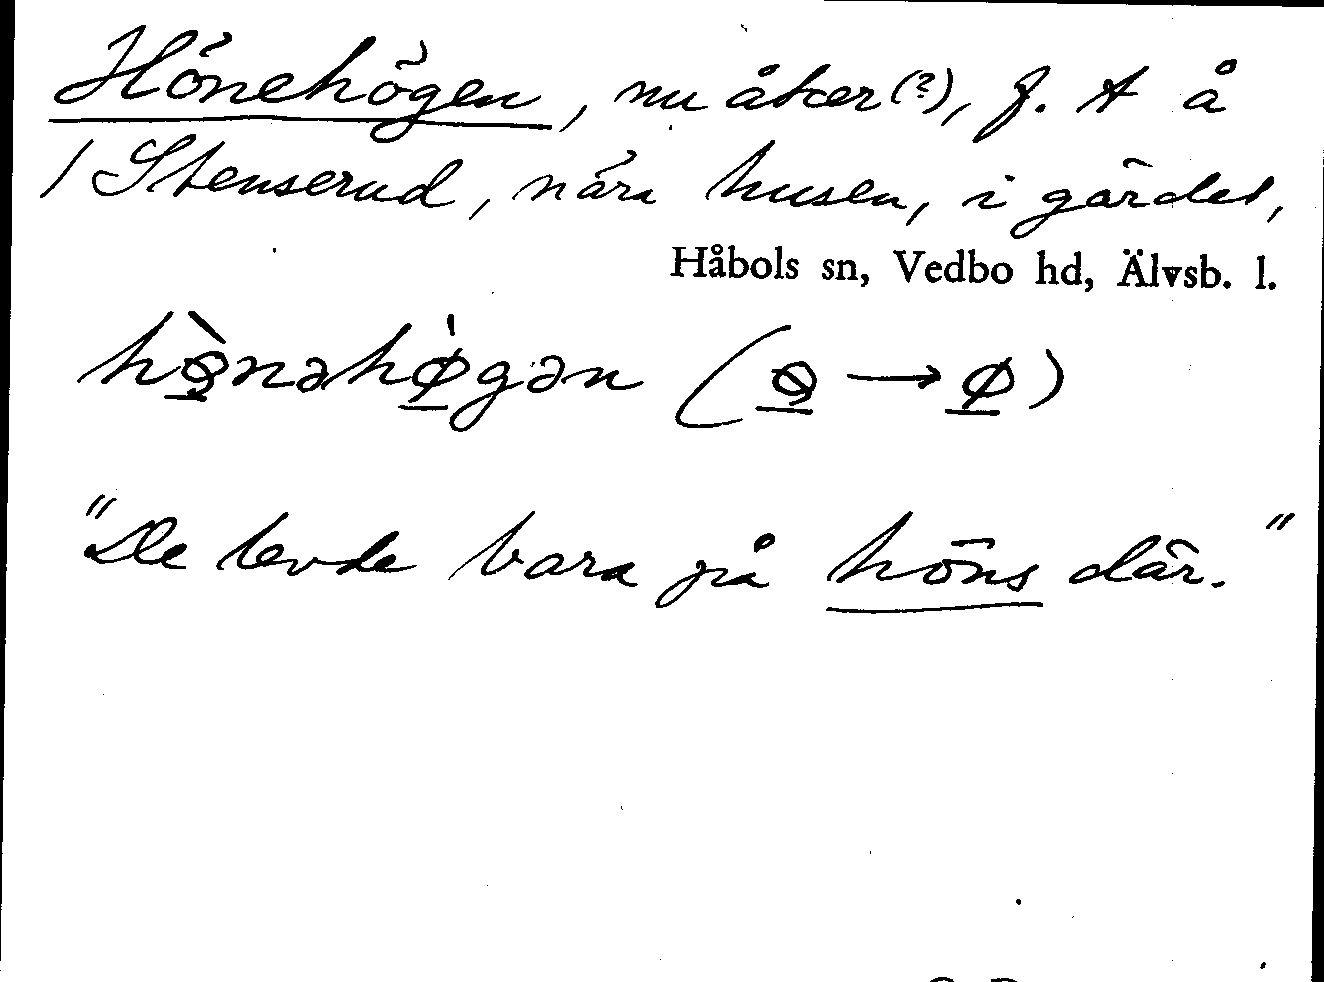 Hönehögen, nu åker(?), f. t å
/ Stenserud, nära husen, i gärdet,
Håbols sn, Vedbo hd, Älvsb. l.
hø̀nəhø̍gən ( → ø)
"De levde bara på höns där."